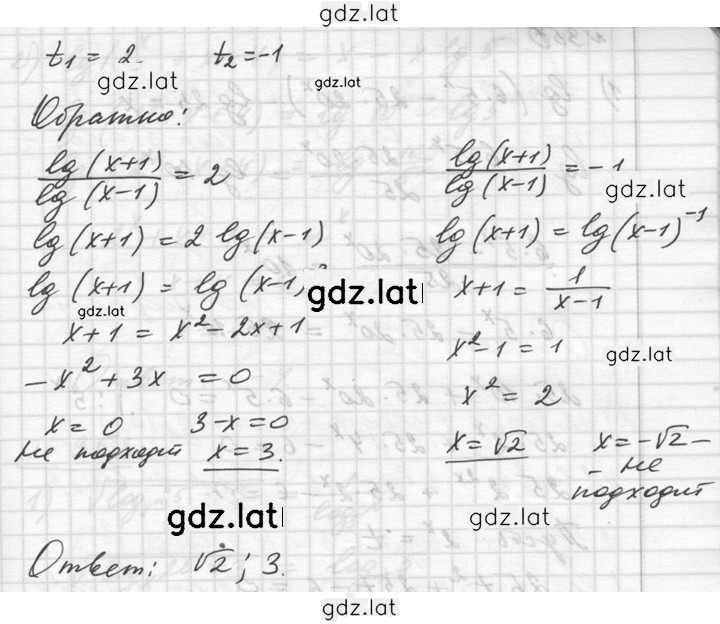 gdz.lat
t₁ = 2. t₂ = -1
gdz.lat gdz.lat
Обратно:
lg(x+1)/lg(x-1) = 2
lg(x+1) = 2 lg(x-1)
lg(x+1) = lg(x-1)²
gdz.lat gdz.lat
x+1 = x²-2x+1
-x²+3x = 0
x = 0 3-x=0
не подходит x = 3.
lg(x+1)/lg(x-1) = -1
gdz.lat
lg(x+1) = lg(x-1)⁻¹
x+1 = 1/(x-1)
x²-1 = 1
gdz.lat
x² = 2
x = √2 x = -√2 -
- не
подходит
gdz.lat gdz.lat
Ответ: √2; 3.
gdz.lat